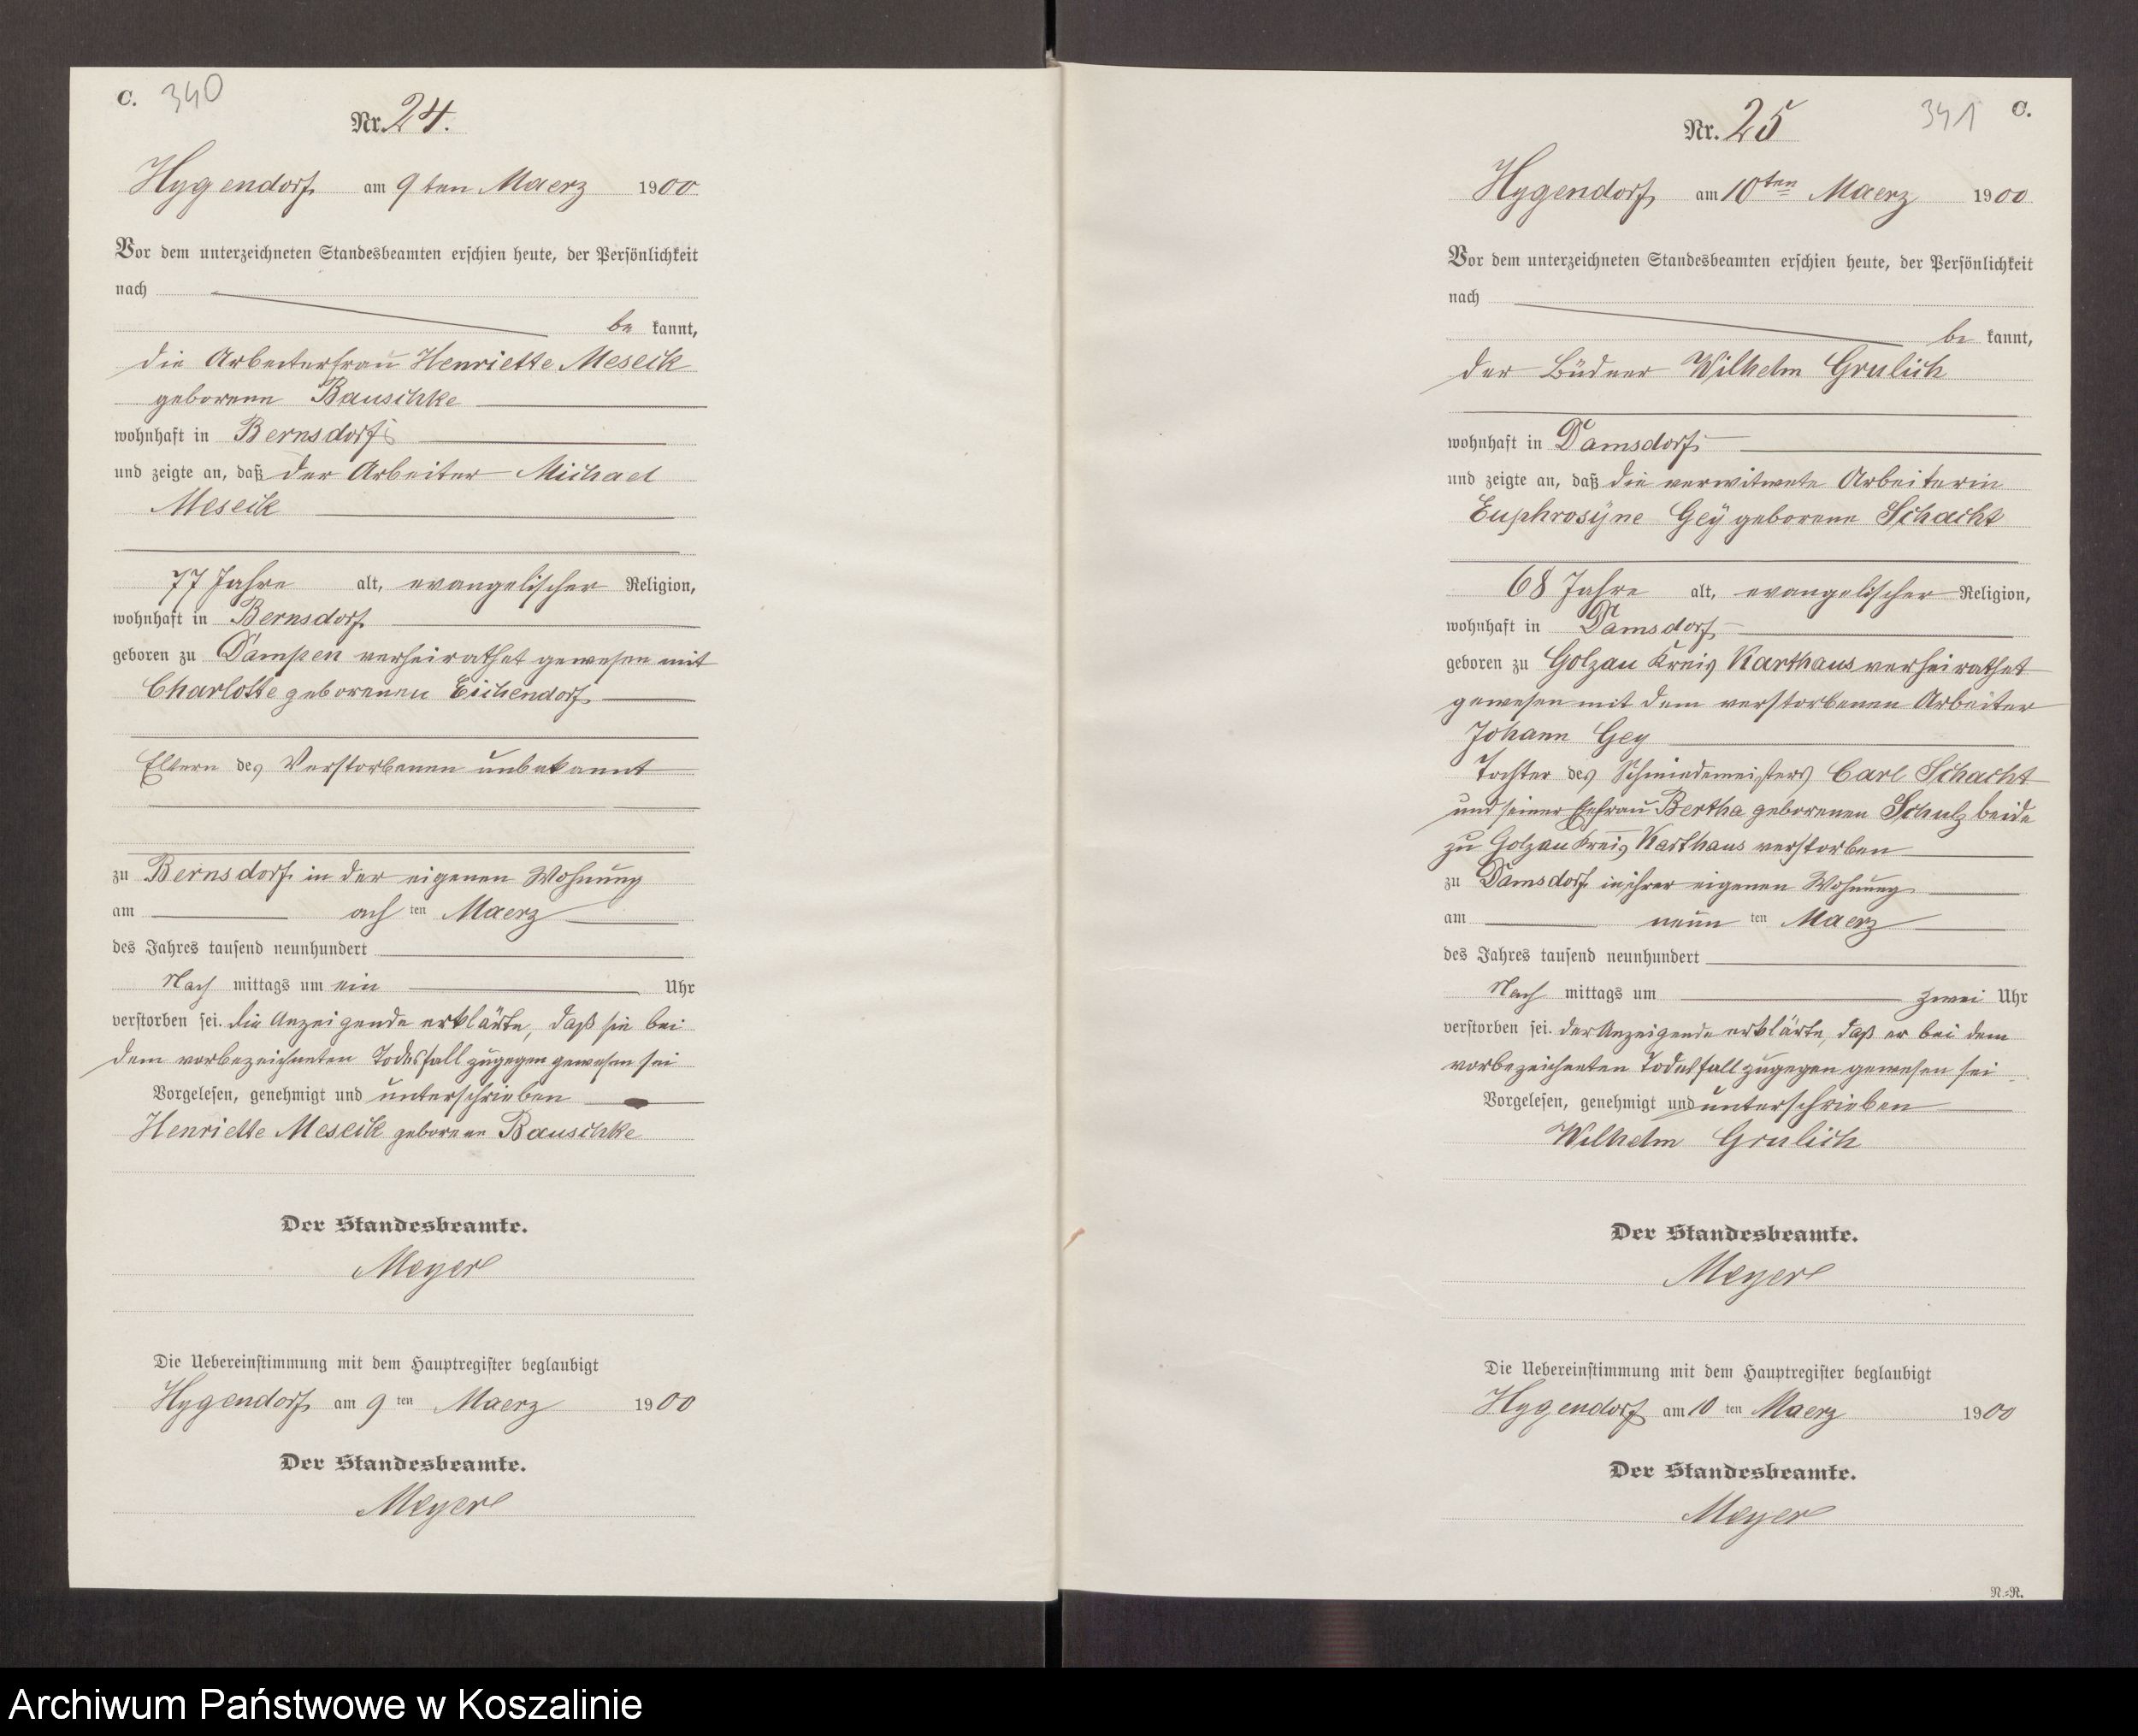 C. 340
Nr. 24.
Hygendorf am 9ten Maerz 1900
Vor dem unterzeichneten Standesbeamten erschien heute, der Persönlichkeit
nach
be kannt,
die Arbeiterfrau Henriette Meseck
geborene Bauschke
wohnhaft in Bernsdorf
und zeigte an, daß der Arbeiter Michael
Meseck
77 Jahre alt, evangelischer Religion,
wohnhaft in Bernsdorf
geboren zu Dampen verheirathet gewesen mit
Charlotte geborenen Eichendorf
Eltern des Verstorbenen unbekannt
zu Bernsdorf in der eigenen Wohnung
am ach ten Maerz
des Jahres tausend neunhundert
Nach mittags um ein Uhr
verstorben sei. die Anzeigende erklärte, daß sie bei
dem vorbezeichneten Todesfall zugegen gewesen sei
Vorgelesen, genehmigt und unterschrieben
Henriette Meseck geborene Bauschke
Der Standesbeamte.
Meyer
Die Uebereinstimmung mit dem Hauptregister beglaubigt
Hygendorf am 9 ten Maerz 1900
Der Standesbeamte.
Meyer
341 C.
Nr. 25
Hygendorf am 10ten Maerz 1900
Vor dem unterzeichneten Standesbeamten erschien heute, der Persönlichkeit
nach
be kannt,
der Büdner Wilhelm Grulich
wohnhaft in Damsdorf
und zeigte an, daß die verwitwete Arbeiterin
Euphrosÿne Geÿ geborene Schacht
68 Jahre alt, evangelischer Religion,
wohnhaft in Damsdorf
geboren zu Golzau Kreis Karthaus verheirathet
gewesen mit dem verstorbenen Arbeiter
Johann Gey
Tochter des Schmiedemeisters Carl Schacht
und seiner Ehefrau Bertha geborenen Schulz beide
zu Golzau Kreis Karthaus verstorben
zu Damsdorf in ihrer eigenen Wohnung
am neun ten Maerz
des Jahres tausend neunhundert
Nach mittags um zwei Uhr
verstorben sei. der Anzeigende erklärte, daß er bei dem
vorbezeichneten Todesfall zugegen gewesen sei
Vorgelesen, genehmigt und unterschrieben
Wilhelm Grulich
Der Standesbeamte.
Meyer
Die Uebereinstimmung mit dem Hauptregister beglaubigt
Hygendorf am 10 ten Maerz 1900
Der Standesbeamte.
Meyer
N.=R.
Archiwum Państwowe w Koszalinie